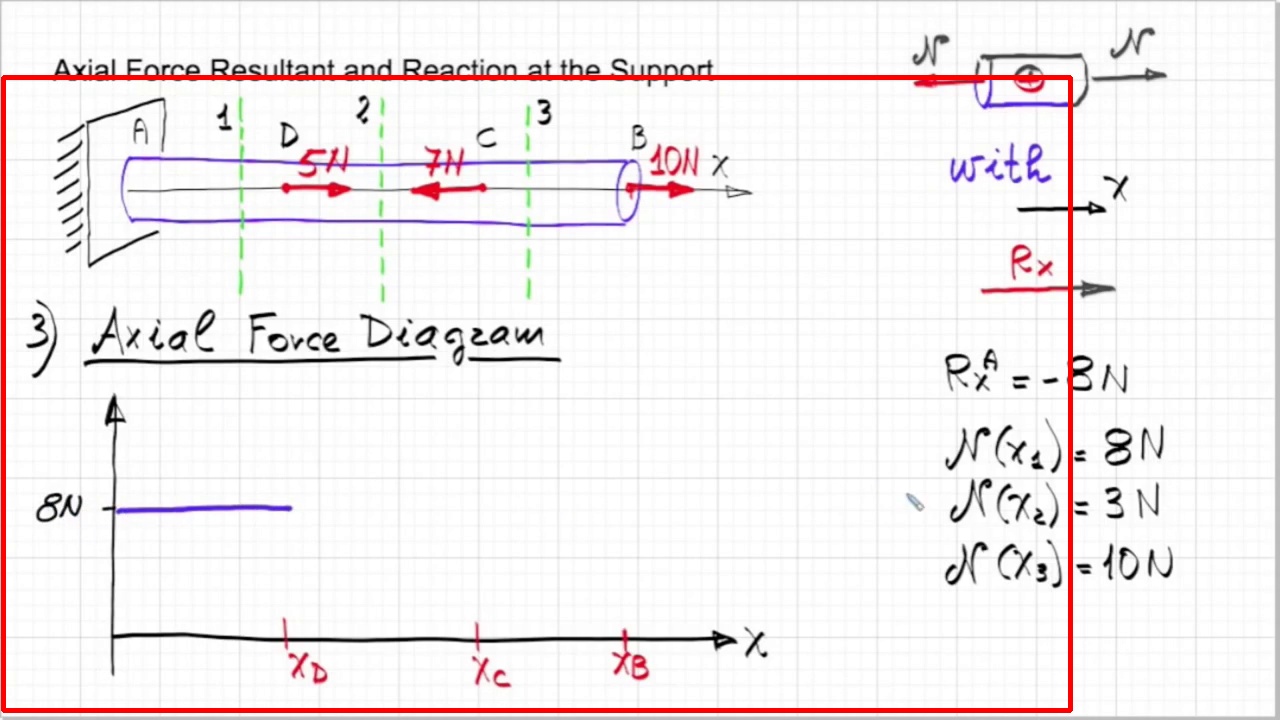 Axial Force Resultant and Reaction at the Support
N N
A 1 D 2 C 3 B
5N 7N 10N X
with
X
Rx
3) Axial Force Diagram
RxA = -8N
N(x1) = 8N
N(x2) = 3N
N(x3) = 10N
8N
X
XD XC XB